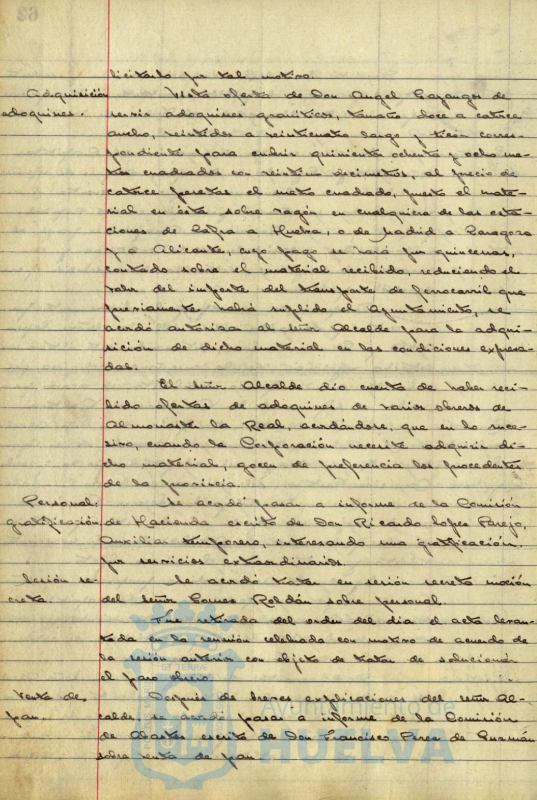 licitado por tal motivo.
Adquisición Vista oferta de Don Angel Gozangos de
adoquines. servir adoquines graníticos, tamaño doce a catorce
ancho, veintidos a veinticuatro largo y tizón corres-
pondiente para cubrir quinientos ochenta y ocho me-
tros cuadrados con veintiun decimetros, al precio de
catorce pesetas el metro cuadrado, puesto el mate-
rial en ésta sobre vagón en cualquiera de las esta-
ciones de Zafra a Huelva, o de Madrid a Zaragoza
y a Alicante, cuyo pago se hará por quincenas,
contado sobre el material recibido, reduciendo el
valor del importe del transporte de ferrocarril que
previamente habrá suplido el Ayuntamiento, se
acordó autorizar al señor Alcalde para la adqui-
sición de dicho material en las condiciones expresa-
das.
El señor Alcalde dio cuenta de haber reci-
bido ofertas de adoquines de varios obreros de
Almonaster la Real, acordándose, que en lo suce-
sivo, cuando la Corporación necesite adquirir di-
cho material, gocen de preferencia los procedentes
de la provincia.
Personal: Se acordó pasar a informe de la Comisión
gratificación, de Hacienda escrito de Don Ricardo Lopez Parejo,
Auxiliar temporero, interesando una gratificación
por servicios extraordinarios.
Sesión se- Se acordó tratar en sesión secreta moción
creta. del señor Gomez Roldán sobre personal.
Fue retirada del orden del día el acta levan-
tada en la reunión celebrada con motivo de acuerdo de
la sesión anterior con objeto de tratar de solucionar
el paro obrero.
Venta de Después de breves explicaciones del señor Al-
pan. calde, se acordó pasar a informe de la Comisión
de Abastos escrito de Don Francisco Perez de Guzmán
sobre venta de pan.
Ayuntamiento de
HUELVA